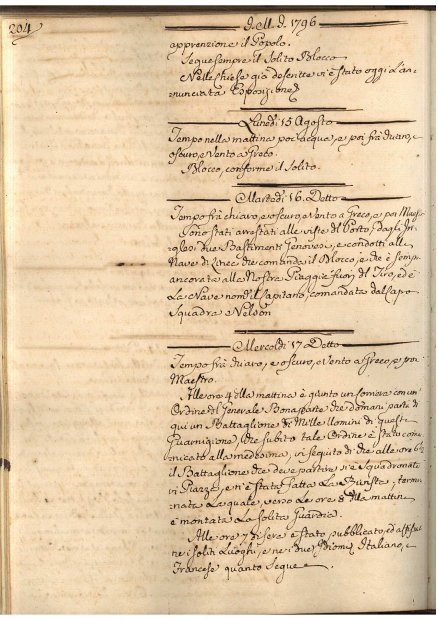 204
J.M.J. 1796
apprenzione il Popolo.
Segue sempre il Solito Blocco
Nelle chiese già descritte vi è stato oggi l'an-
nunciata Esposizione
Lunedì 15 Agosto
Tempo nella mattina poc'acqua, e poi frà chiaro, e
oscuro, e Vento a Greco.
Blocco, conforme il Solito.
Martedì 16. Detto
Tempo frà chiaro, e oscuro, e Vento a Greco, e poi Maestro
Sono stati arrestati alle viste del Porto, dagli In-
glesi due Bastimenti Genovesi, e condotti alle
Nave di che comanda il Blocco, e che è sempre
ancorata alle Nostre Piaggie fuori di Tiro, ed è
La Nave nom: il Capitano, comandata dal Capo
Squadra Nelson
Mercoldì 17 Detto
Tempo frà chiaro, e oscuro, e Vento a Greco, e poi
Maestro.
Alle ore 4 della mattina è giunto un Corriere con un'
Ordine del Generale Bonaparte che domani parta di
qui un Battaglione di Mille Uomini di questa
Guarnigione, che subito tale Ordine è stato comu-
nicato alla medesima, in seguito di che alle ore 6½
il Battaglione che deve partire si è Squadronato
in Piazza, e vi è stata fatta La Rivista, termi-
nata La quale, verso Le ore 8 della mattina
è montata La Solita Guardia.
Alle ore 7 di sera è stato pubblicato, ed affisso
ne i soliti Luoghi, e ne i due Idiomi Italiano, e
Francese quanto Segue